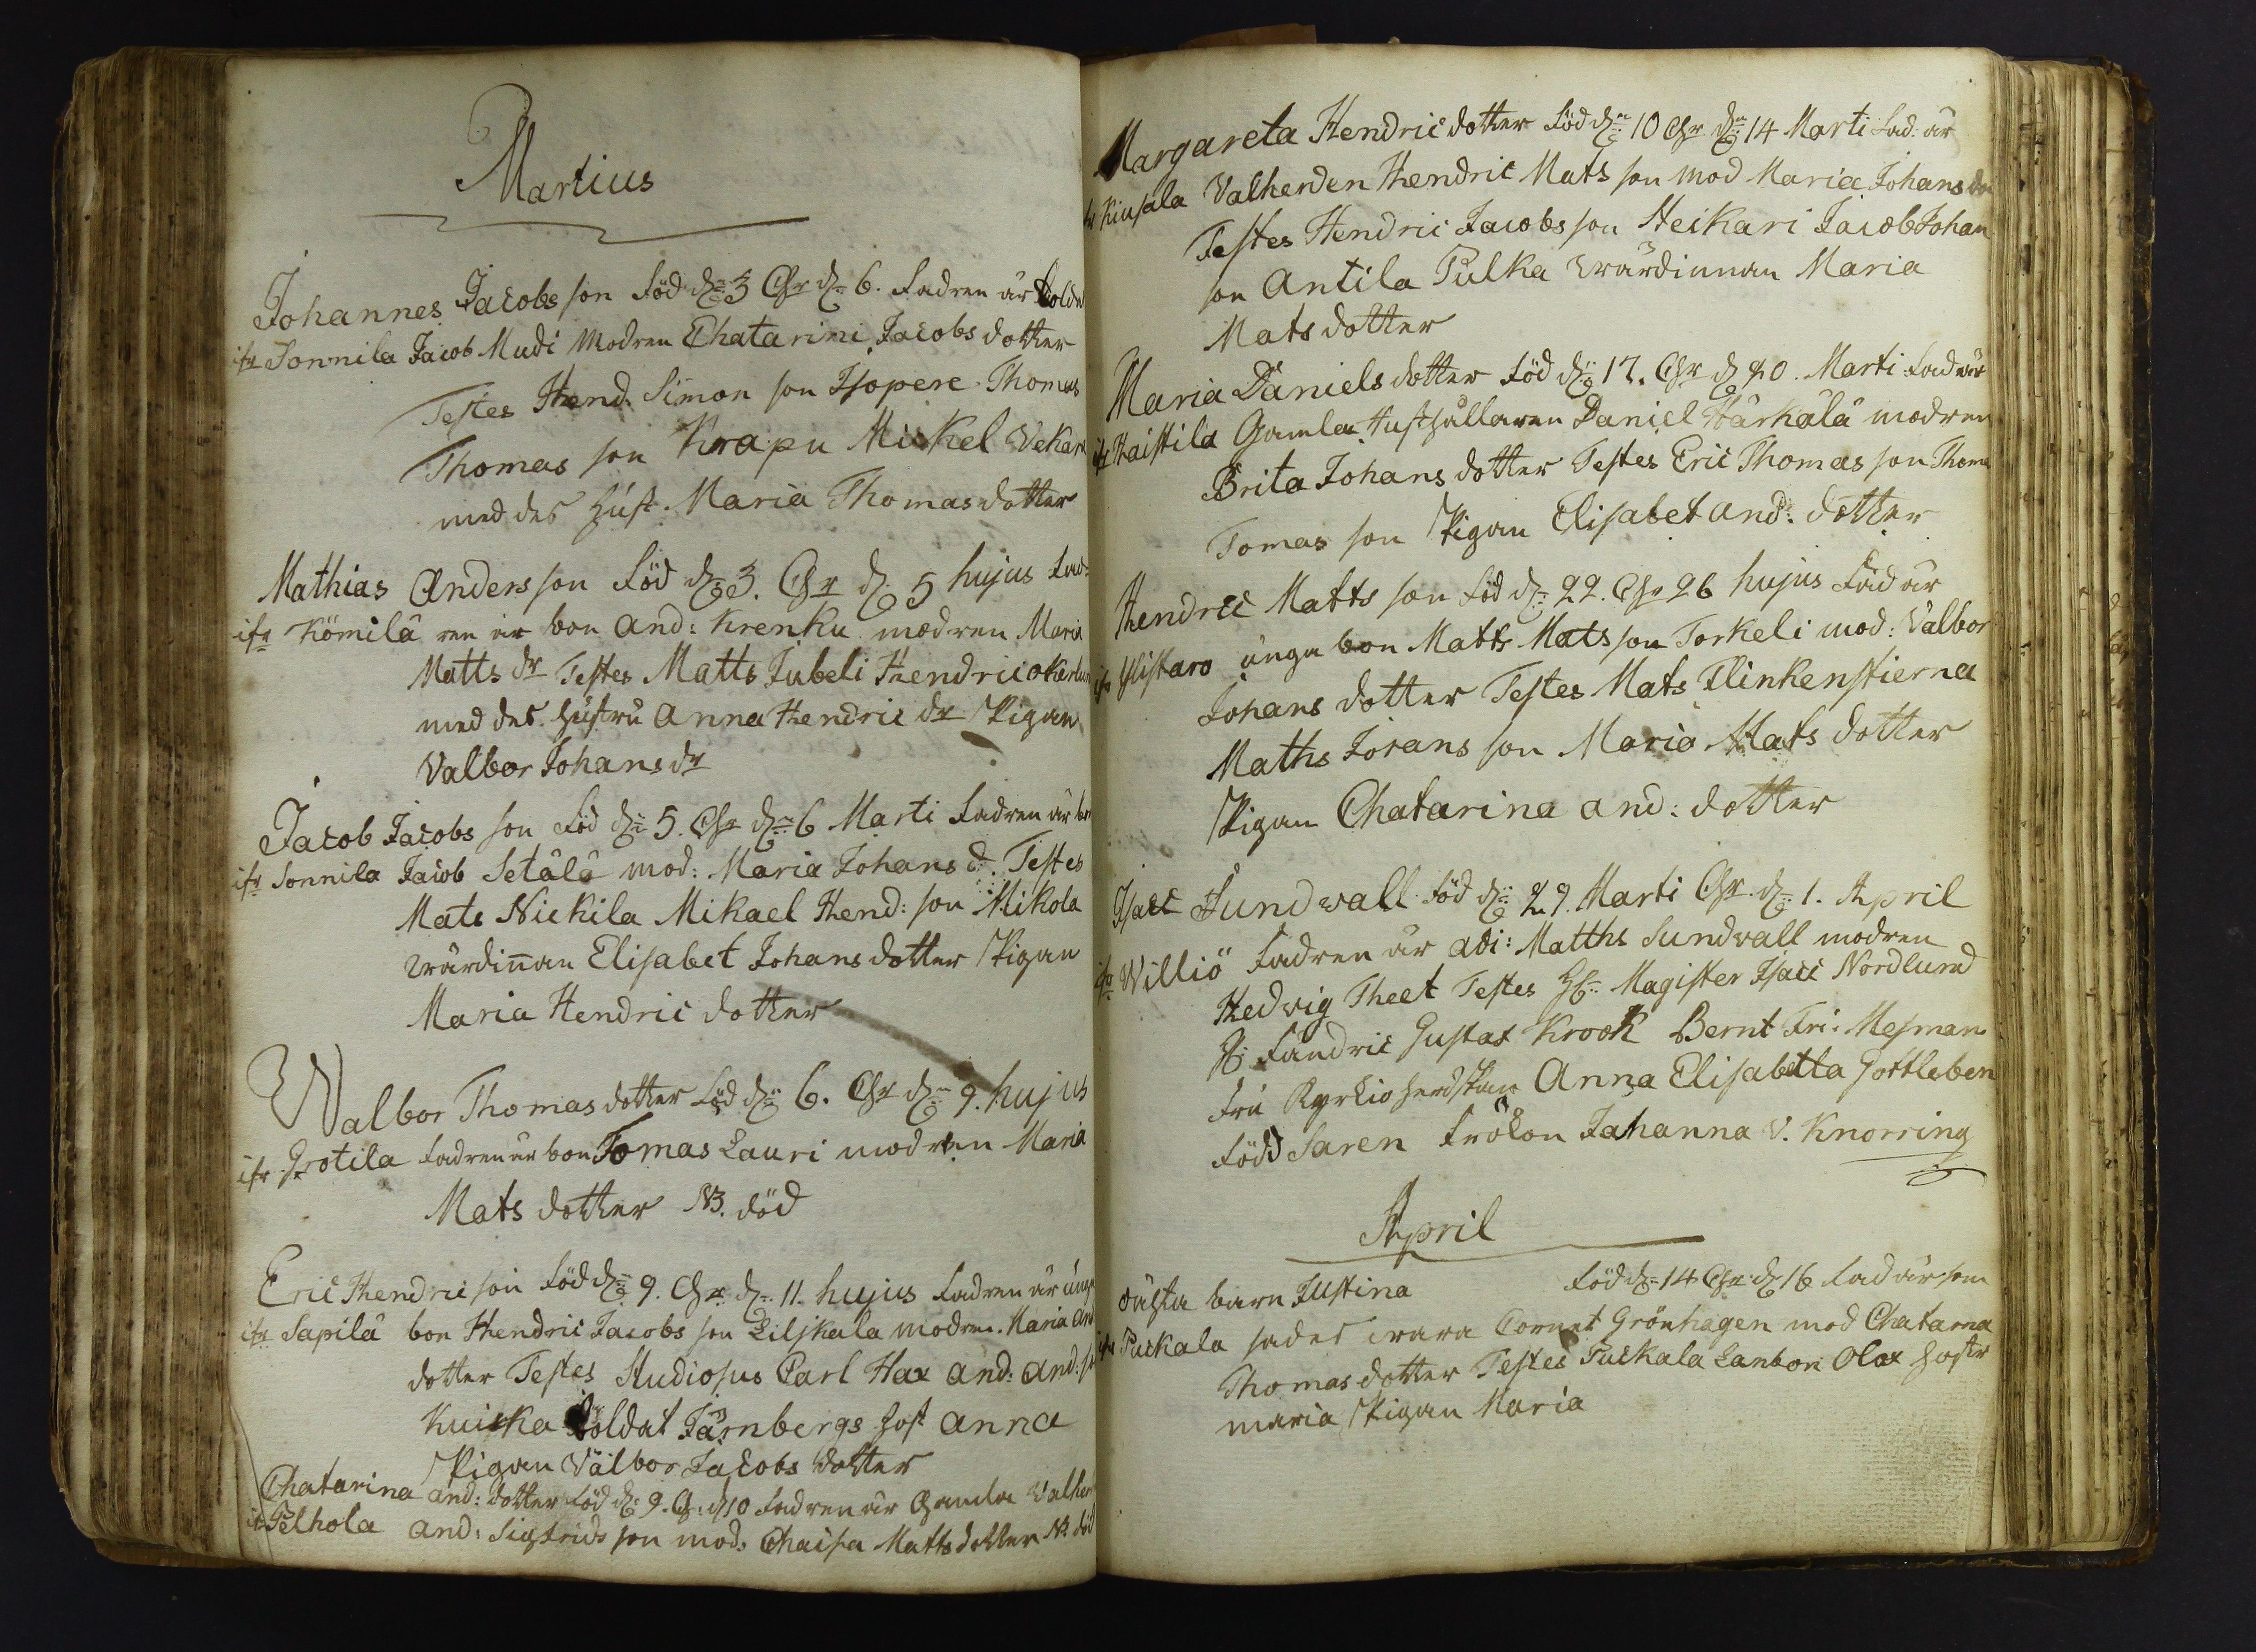 Martius
Johannes Jacobs son född dn 3 Chr dn 6. Fadren är
ifr Sonnila Jacob Mudi Modren Chatarini Jacobs dotter
Testes Hend. Simon son Isopere Thomas
Thomas son Krapu Mickel Vekar
med des hust. Maria Thomasdotter
Mathias Anders son Föd dn 3. Chr d. 5 hujus Fad=
ifr Kömilä ren är bon And: Krenku modren Maria
Matts dr Testes Matts Jubeli Hendric
med des hustru Anna Hendric dr Pigan
Valbor Johans dr
Jacob Jacobs son Föd dn 5. Chr dn 6 Marti Fadren är
ifr Sonnila Jacob Setälä mod: Maria Johans d. Testes
Mats Nickila Mikael Hend: son Mikola
wärdinan Elisabet Johans dotter Pigan
Maria Hendric dotter
Walbor Thomas dotter Föd dn 6. Chr dn 9. hujus
ifr Grotila Fadren är bon Tomas Lauri modren Maria
Mats dotter NB. död
Eric Hendric son Född dn 9. Chr dn 11. hujus Fadren är unge
ifr Sapilä bon Hendric Jacobs son Liljkala modren Maria And
dotter Testes Studiosus Carl Hax And: And:
Kuicka Soldat Järnbergs host Anna
Pigan Valbor Jacobs dotter
Chatarina And: dotter Föd d. 9. Ch: d 10 Fadren är Gamla
if Pelhola And: Sigfrids son mod: Chaisa Matts dotter NB. död
Margareta Hendric dotter Född dn 10 Chr dn 14 Marti Fad: är
Kiusala Valherden Hendric Mats son mod Maria Johans
Testes Hendric Jacobs son Heikari Jacob Johan
son Antila Pulka wärdinnan Maria
Mats dotter
Maria Daniels dotter Föd dn 17. Chr d 20. Marti Fad är
ifr Haistila Gamla Husthållaren Daniel Härkälä modren
Brita Johans dotter Testes Eric Thomas son Thoma
Tomas son Pigan Elisabet And: dotter
Hendric Matts son Föd dn 22. Chr 26 hujus Fad är
ifr Ylistaro unga bon Matts Mats son Torkeli mod: Valbor
Johans dotter Testes Mats Flinkenstierna
Maths Jorans son Maria Mats dotter
Pigan Chatarina And: dotter
Isaec Sundwall Föd dn 29. Marti Chr. dn 1. April
ifr Williö Fadren är Adi: Matths Sundvall modren
Hedvig Theet Testes Hr Magister Isacc Nordlund
H: Fändric Gustaf Krook Bernt Fri: Mesman
Fru Kyrkioherdskan Anna Elisabetta Gottleben
Född Saren Fröken Jahanna V. Knorring
April
oäckta barn Justina Född dn 14 Chr d 16 Fad är som
ifr Puckala sades wara Cornet Grönhagen mod Chatarna
Thomas dotter Testes Puckala Lanbon Olax hostr
maria Pigan Maria